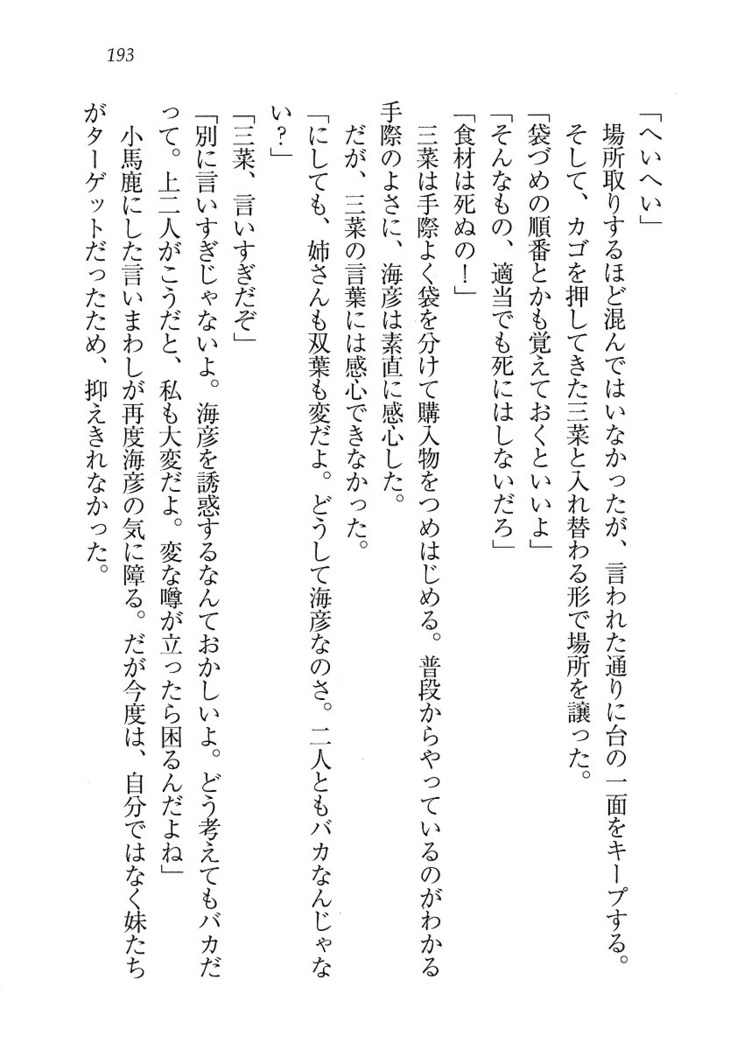 193
「へいへい」
　場所取りするほど混んではいなかったが、言われた通りに台の一面をキープする。
　そして、カゴを押してきた三菜と入れ替わる形で場所を譲った。
「袋づめの順番とかも覚えておくといいよ」
「そんなもの、適当でも死にはしないだろ」
「食材は死ぬの！」
　三菜は手際よく袋を分けて購入物をつめはじめる。普段からやっているのがわかる
手際のよさに、海彦は素直に感心した。
　だが、三菜の言葉には感心できなかった。
「にしても、姉さんも双葉も変だよ。どうして海彦なのさ。二人ともバカなんじゃな
い？」
「三菜、言いすぎだぞ」
「別に言いすぎじゃないよ。海彦を誘惑するなんておかしいよ。どう考えてもバカだ
って。上二人がこうだと、私も大変だよ。変な噂が立ったら困るんだよね」
　小馬鹿にした言いまわしが再度海彦の気に障る。だが今度は、自分ではなく妹たち
がターゲットだったため、抑えきれなかった。